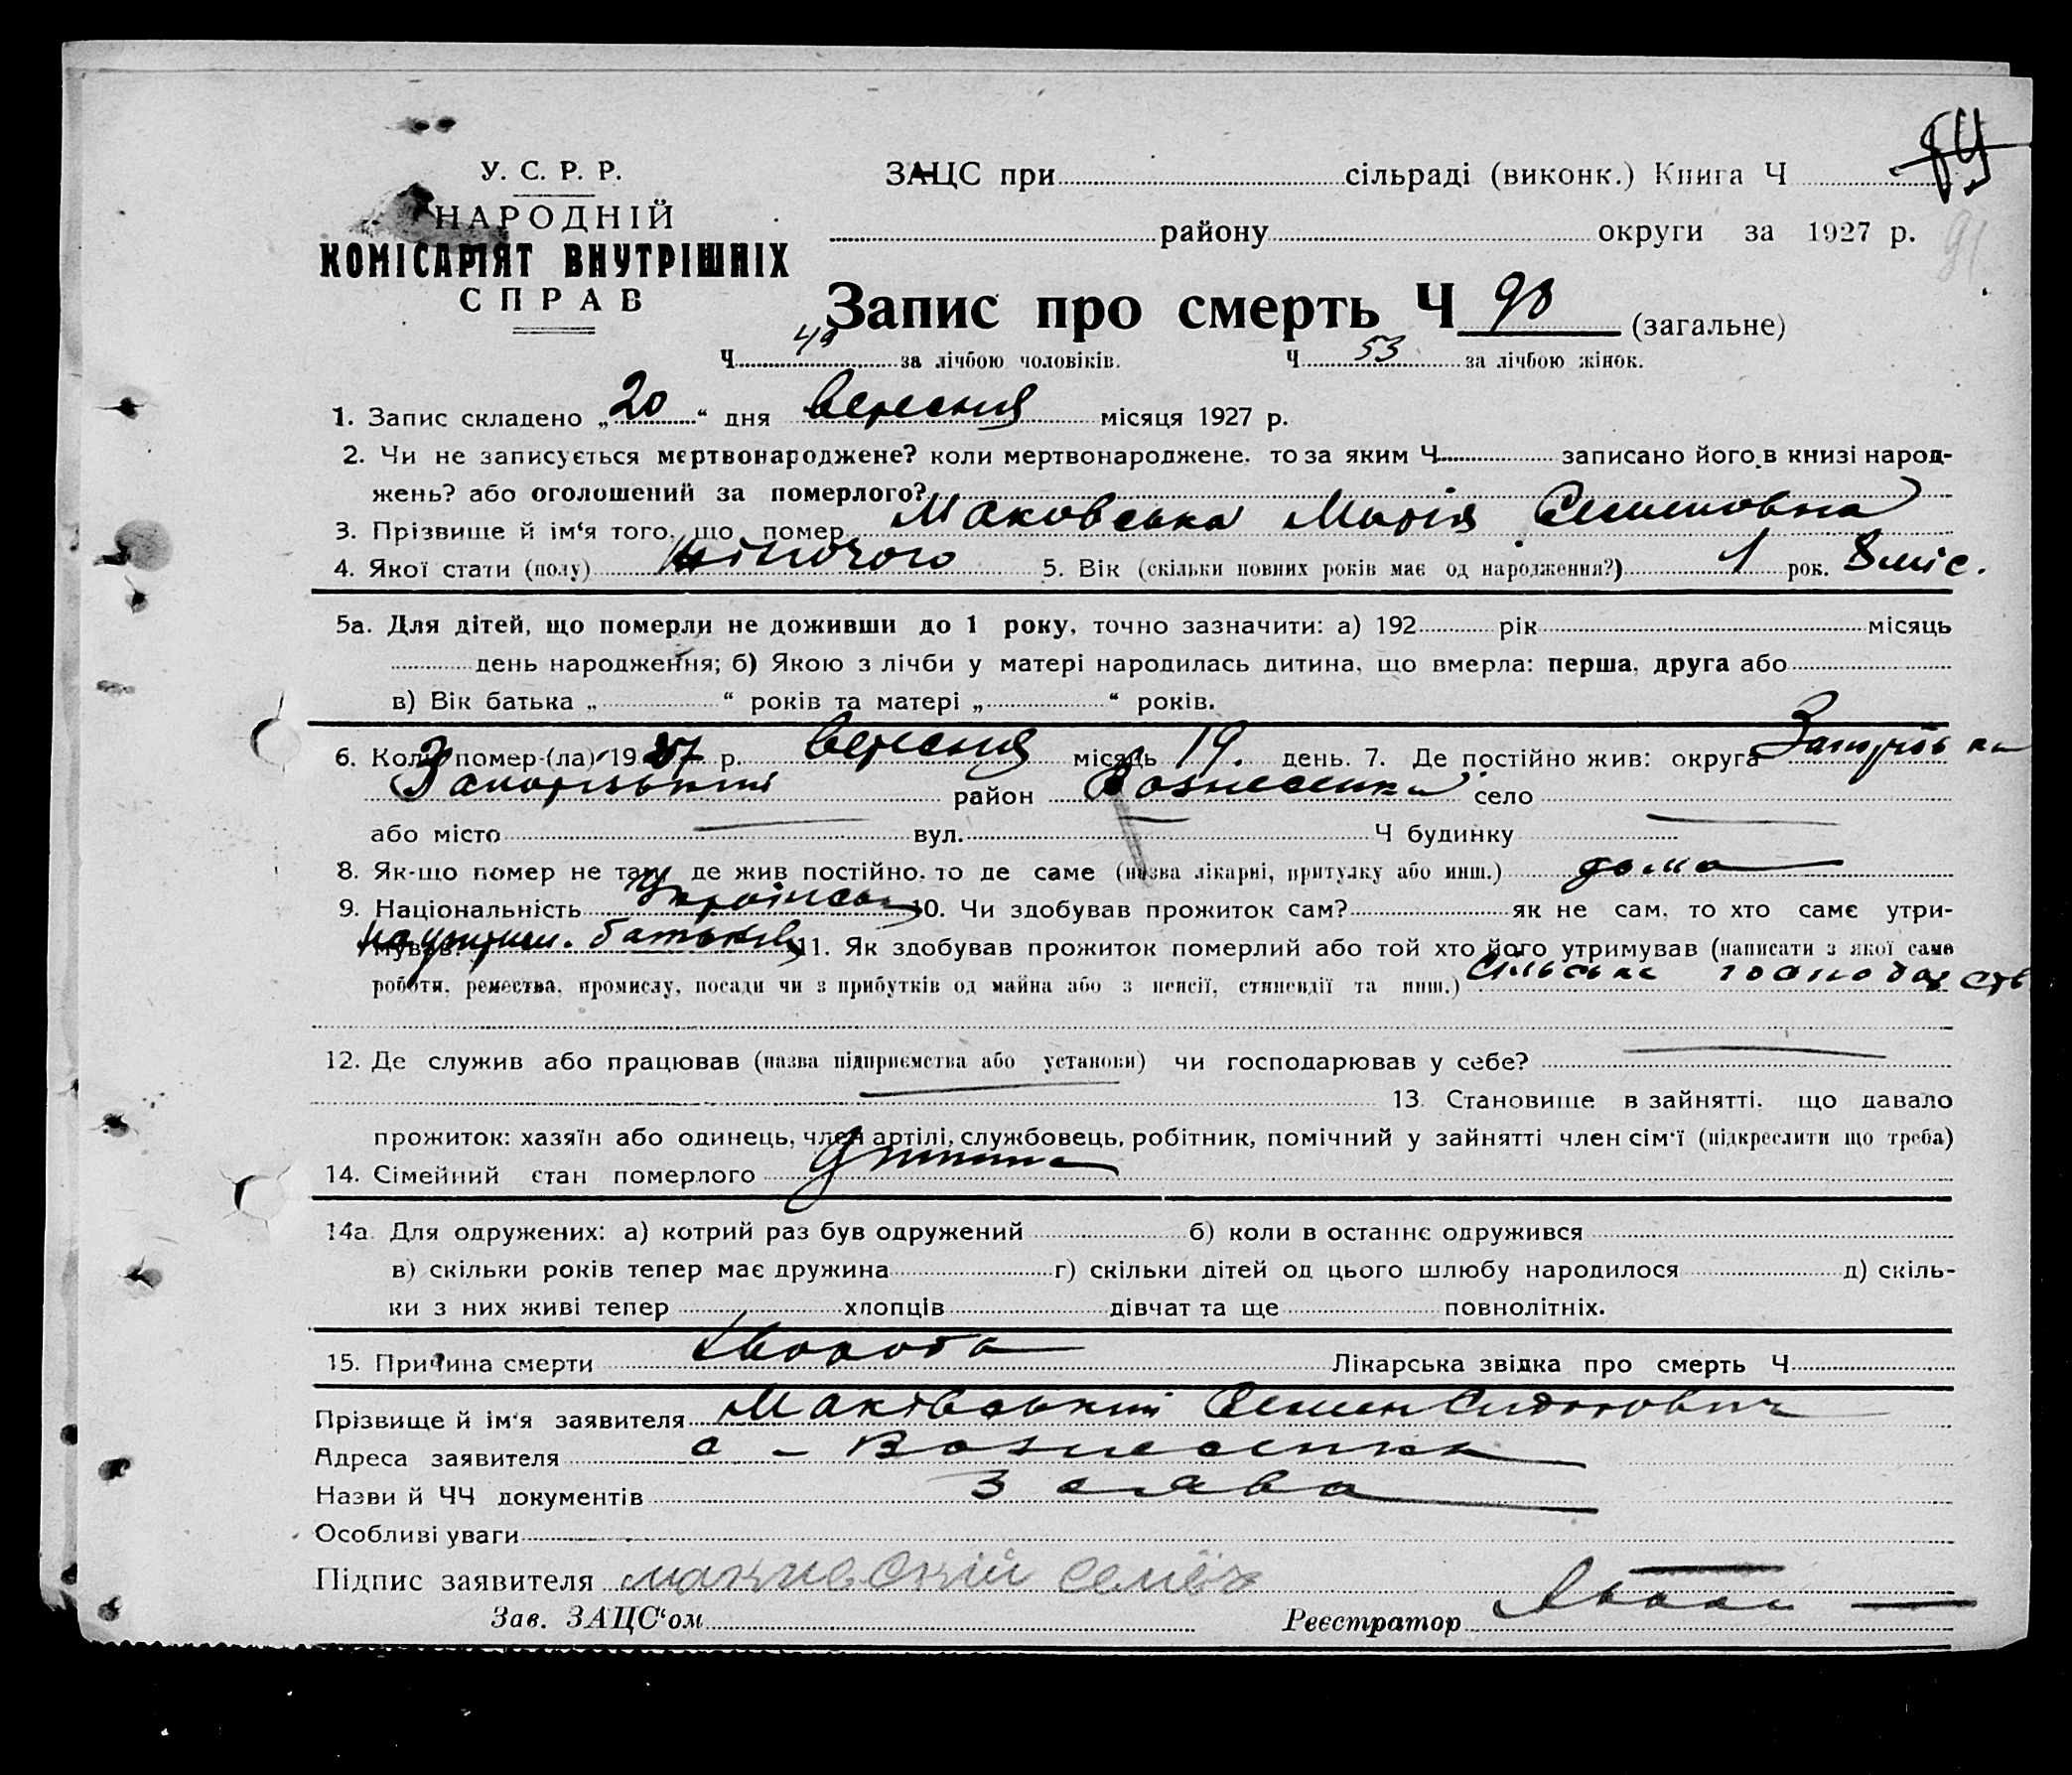 84
У. С. Р. Р.
НАРОДНІЙ
КОМІСАРІЯТ ВНУТРІШНІХ
СПРАВ
ЗАЦС при сільраді (виконк.) Книга Ч
району округи за 1927 р.
91
Запис про смерть Ч 90 (загальне)
Ч за лічбою чоловіків. Ч 53 за лічбою жінок.
1. Запис складено „20“ дня вересня місяця 1927 р.
2. Чи не записується мертвонароджене? коли мертвонароджене, то за яким Ч записано його в книзі народ-
жень? або оголошений за померлого?
3. Прізвище й ім‘я того, що помер Маковська Марія Семеновна
4. Якої стати (полу) жіночого 5. Вік (скільки повних років має од народження?) 1 рок. 8 міс.
5а. Для дітей, що померли не доживши до 1 року, точно зазначити: а) 192 рік місяць
день народження; б) Якою з лічби у матері народилась дитина, що вмерла: перша, друга або
в) Вік батька „ “ років та матері „ “ років.
6. Коли помер-(ла) 1927 р. вересня місяць 19 день. 7. Де постійно жив: округа
Запорізький район Вознесенка село
або місто вул. Ч будинку
8. Як-що помер не там, де жив постійно, то де саме (назва лікарні, притулку або инш.) дома
9. Національність 10. Чи здобував прожиток сам? як не сам, то хто саме утри-
мував? батьків 11. Як здобував прожиток померлий або той хто його утримував (написати з якої саме
роботи, ремества, промислу, посади чи з прибутків од майна або з пенсії, стипендії та инш.) сільське господарств
12. Де служив або працював (назва підприємства або установи) чи господарював у себе?
13. Становище в зайнятті, що давало
прожиток: хазяїн або одинець, член артілі, службовець, робітник, помічний у зайнятті член сім‘ї (підкреслити що треба)
14. Сімейний стан померлого дитина
14а. Для одружених: а) котрий раз був одружений б) коли в останнє одружився
в) скільки років тепер має дружина г) скільки дітей од цього шлюбу народилося д) скіль-
ки з них живі тепер хлопців дівчат та ще повнолітніх.
15. Причина смерти хвороба Лікарська звідка про смерть Ч
Прізвище й ім‘я заявителя Маківський Семен Сидорович
Адреса заявителя с - Вознесенка
Назви й ЧЧ документів З слова
Особливі уваги
Підпис заявителя
Зав. ЗАЦС‘ом Реєстратор